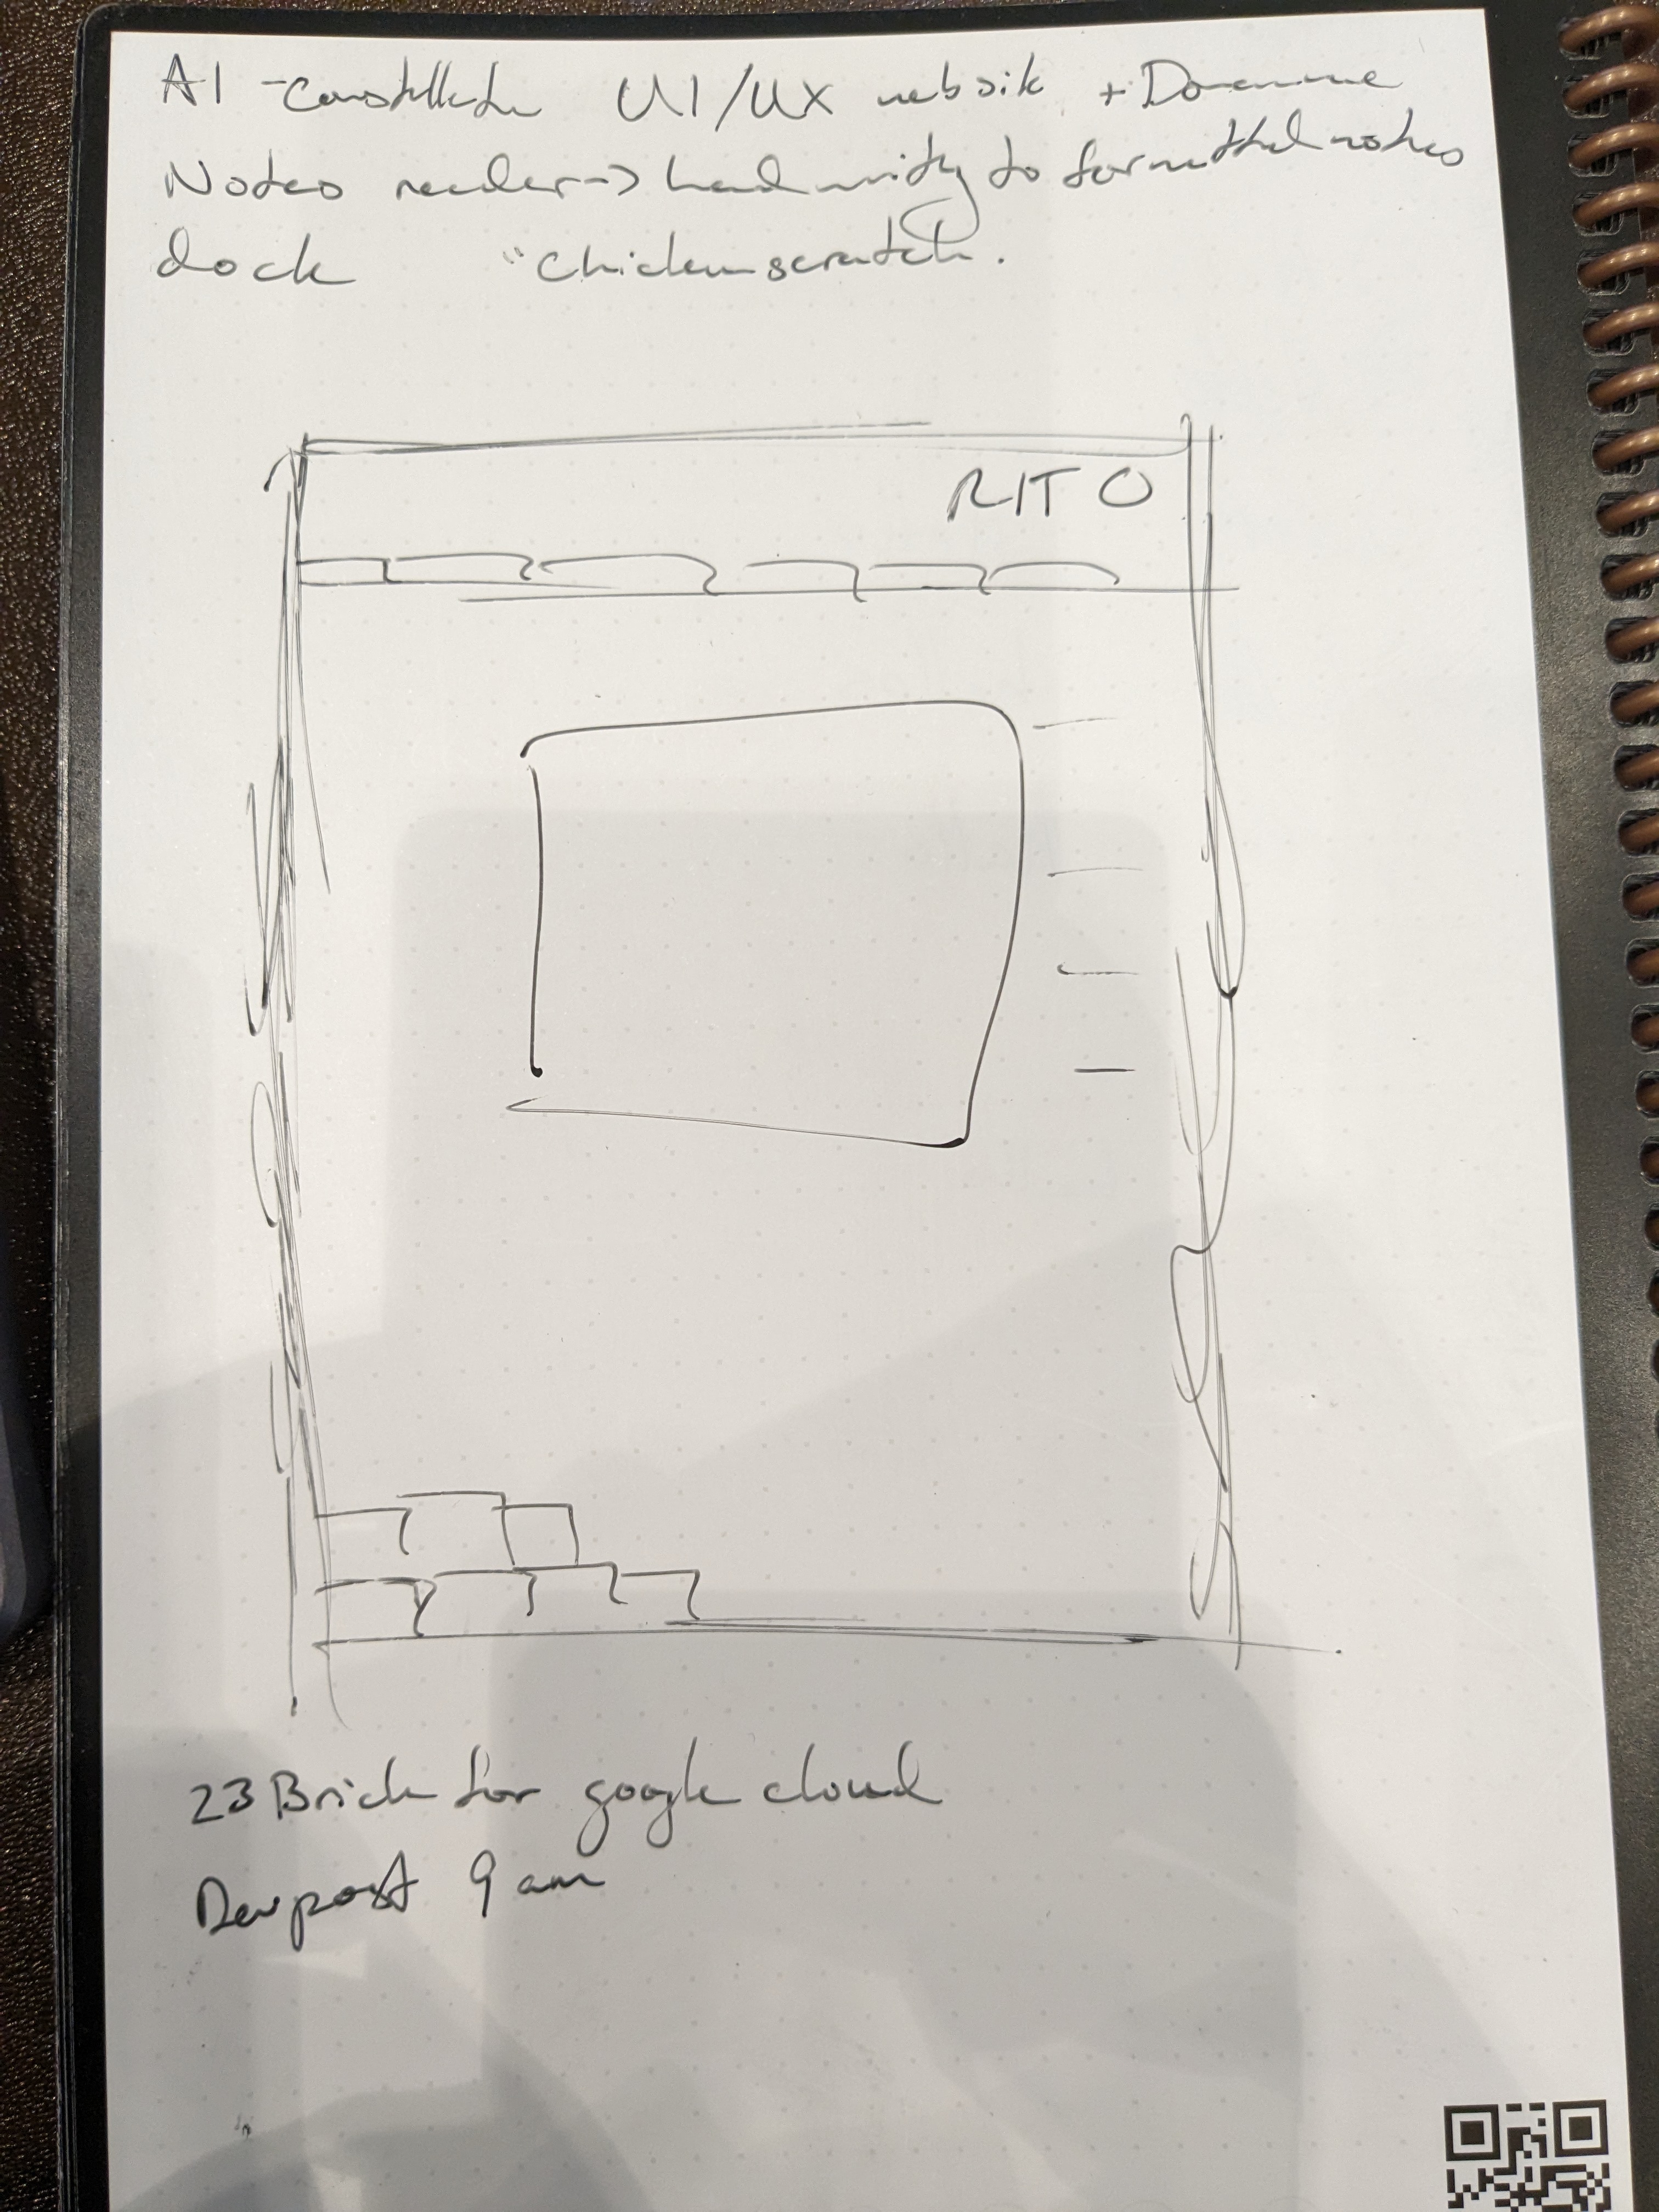 AI - Constellation UI/UX website +
Notes reader -> handwriting to formatted notes
dock "Chickenscratch.
RIT O
23 Brick for google cloud
Devpost 9 am